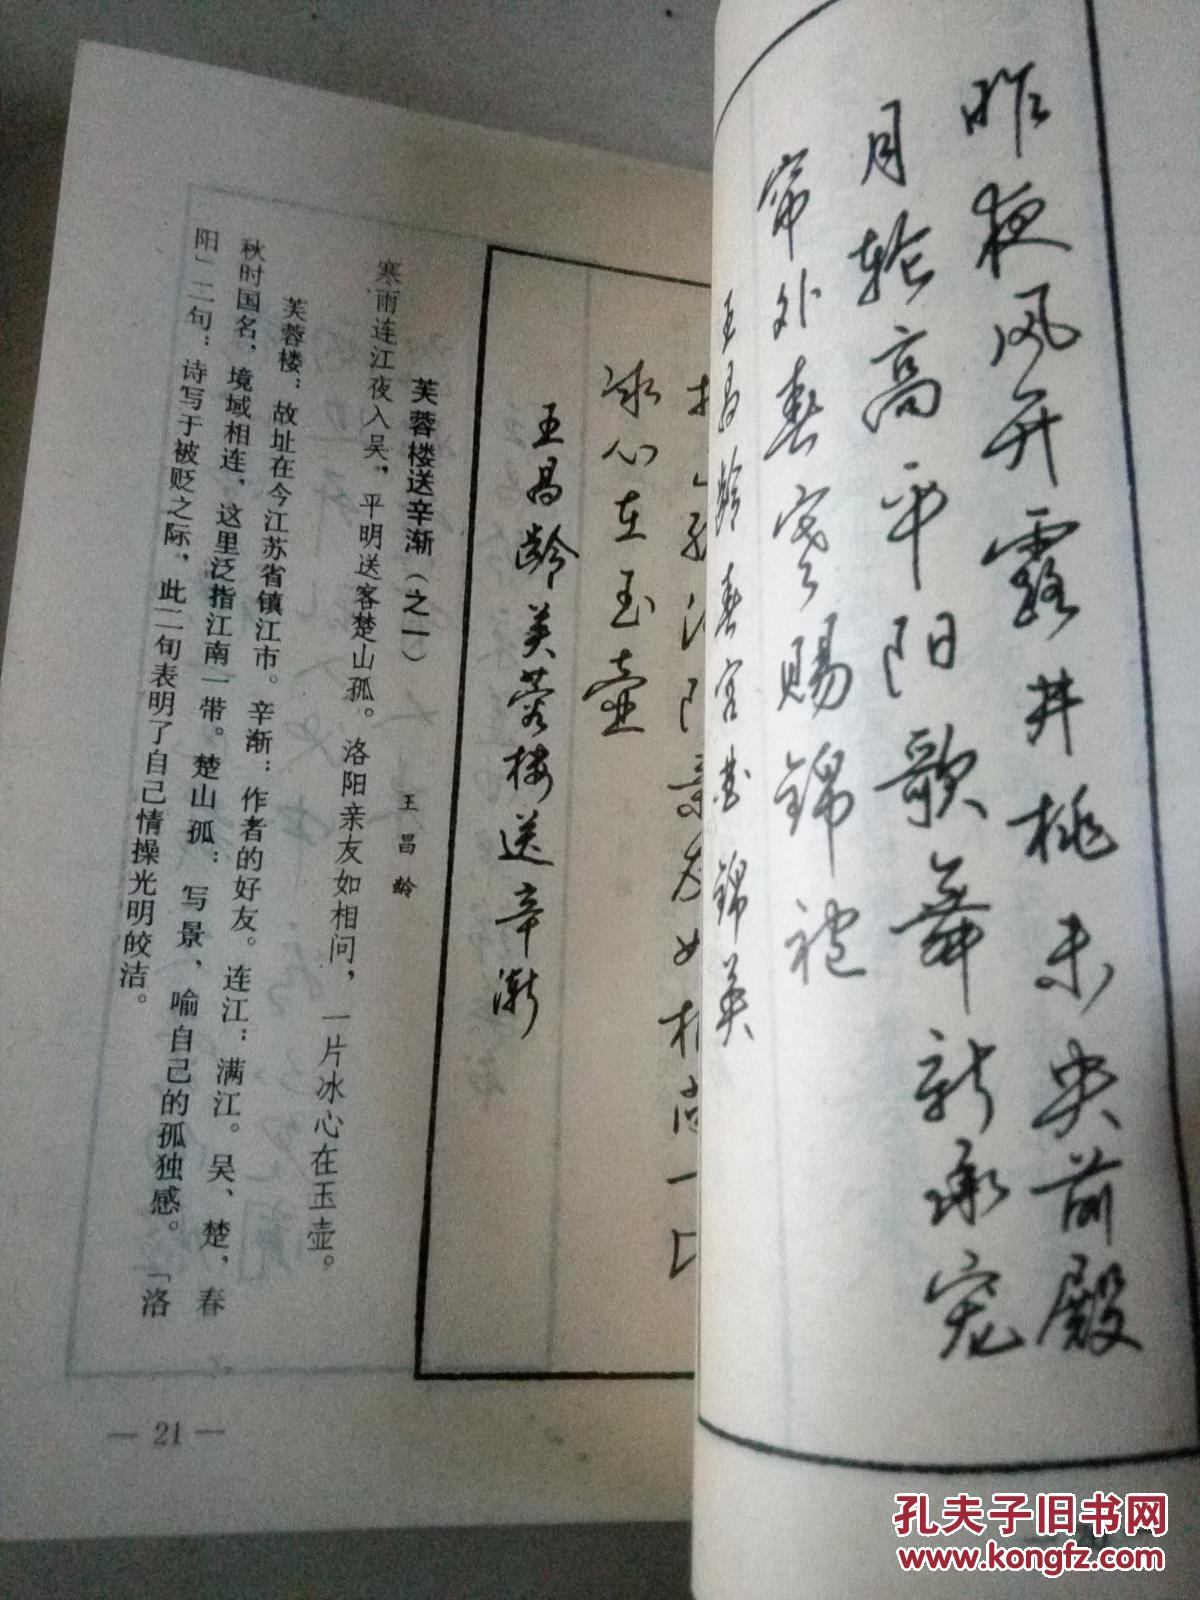 昨夜风开露井桃未央前殿
月轮高平阳歌舞新承宠
帘外春寒赐锦袍
王昌龄春宫曲 锦英
冰心在玉壶
王昌龄芙蓉楼送辛渐
芙蓉楼送辛渐(之一)
王昌龄
寒雨连江夜入吴,平明送客楚山孤。洛阳亲友如相问,一片冰心在玉壶。
芙蓉楼:故址在今江苏省镇江市。辛渐:作者的好友。连江:满江。吴、楚,春
秋时国名,境域相连,这里泛指江南一带。楚山孤:写景、喻自己的孤独感。「洛
阳」二句:诗写于被贬之际,此二句表明了自己情操光明皎洁。
— 21 —
孔夫子旧书网
www.kongfz.com